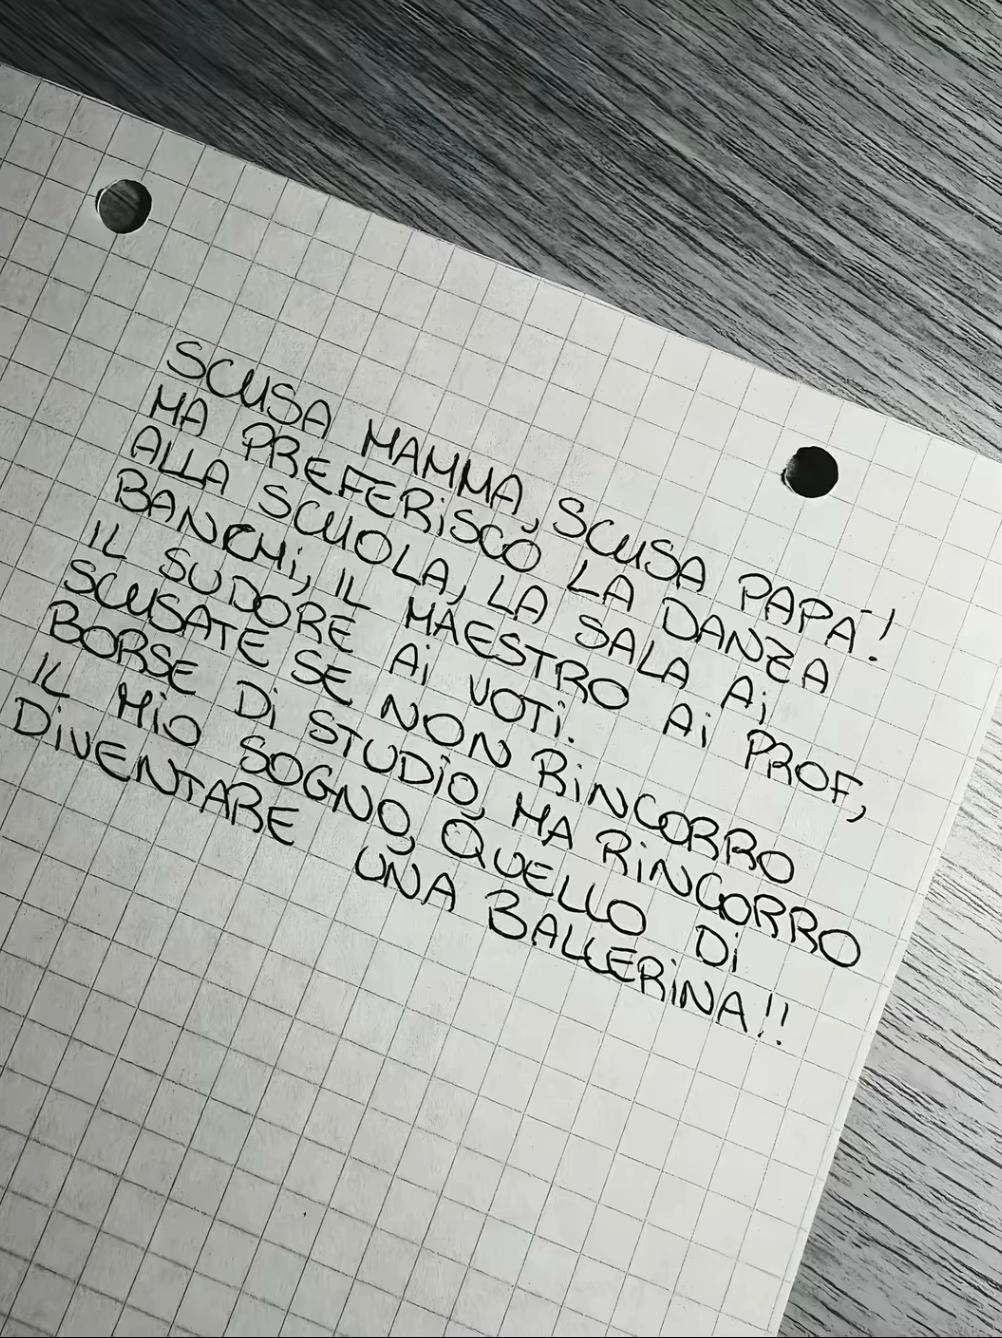 SCUSA MAMMA, SCUSA PAPÀ!
MA PREFERISCO LA DANZA
ALLA SCUOLA, LA SALA Ai
BANCHi, IL MAESTRO Ai PROF,
IL SUDORE Ai VOTi.
SCUSATE SE NON RiNCORRO
BORSE Di STUDIO, MA RiNCORRO
IL MiO SOGNO, QUELLO Di
DiVENTARE UNA BALLERiNA!!